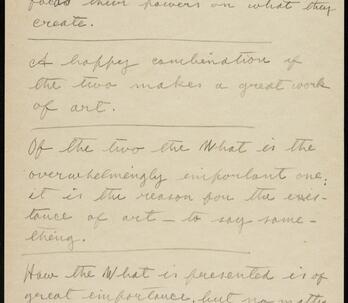 focus their powers on what they
create.
A happy combination of
the two makes a great work
of art.
Of the two the What is the
overwhelmingly important one;
it is the reason for the exis-
tance of art — to say some-
thing.
How the What is presented is of
great importance, but no matter